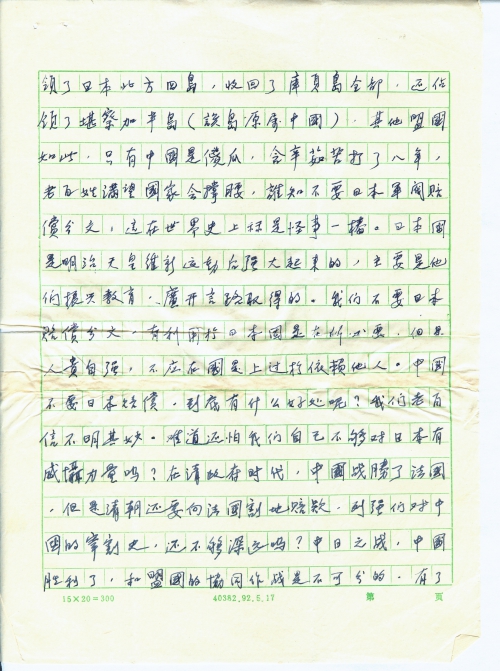 领了日本北方四島，收回了庫頁島全部，还佔
领了堪察加半島（該島原属中國）．其他盟國
如此，只有中國是傻瓜，含辛茹苦打了八年，
老百姓满望國家会撑腰，誰知不要日本軍阀赔
償分文，这在世界史上称是怪事一樁。日本國
是明治天皇维新运动后强大起来的，主要是他
们振兴教育、廣开言路取得的。我们不要日本
赔償分文，有利團於日本國是 必要，但是
人貴自强，不应在國是上过於依赖他人。中國
不要日本赔償，到底有什么好处呢？我们老百
信不明其妙。难道还怕我们自己不够对日本有
威懾力量吗？在清政府时代，中國战勝了法國
，但是清朝还要向法國割地赔款，列强们对中
國的宰割史，还不够深远吗？中日之战，中國
胜利了，和盟國的協同作战是不可分的，有了
15×20=300 40382.92.5.17 第 页